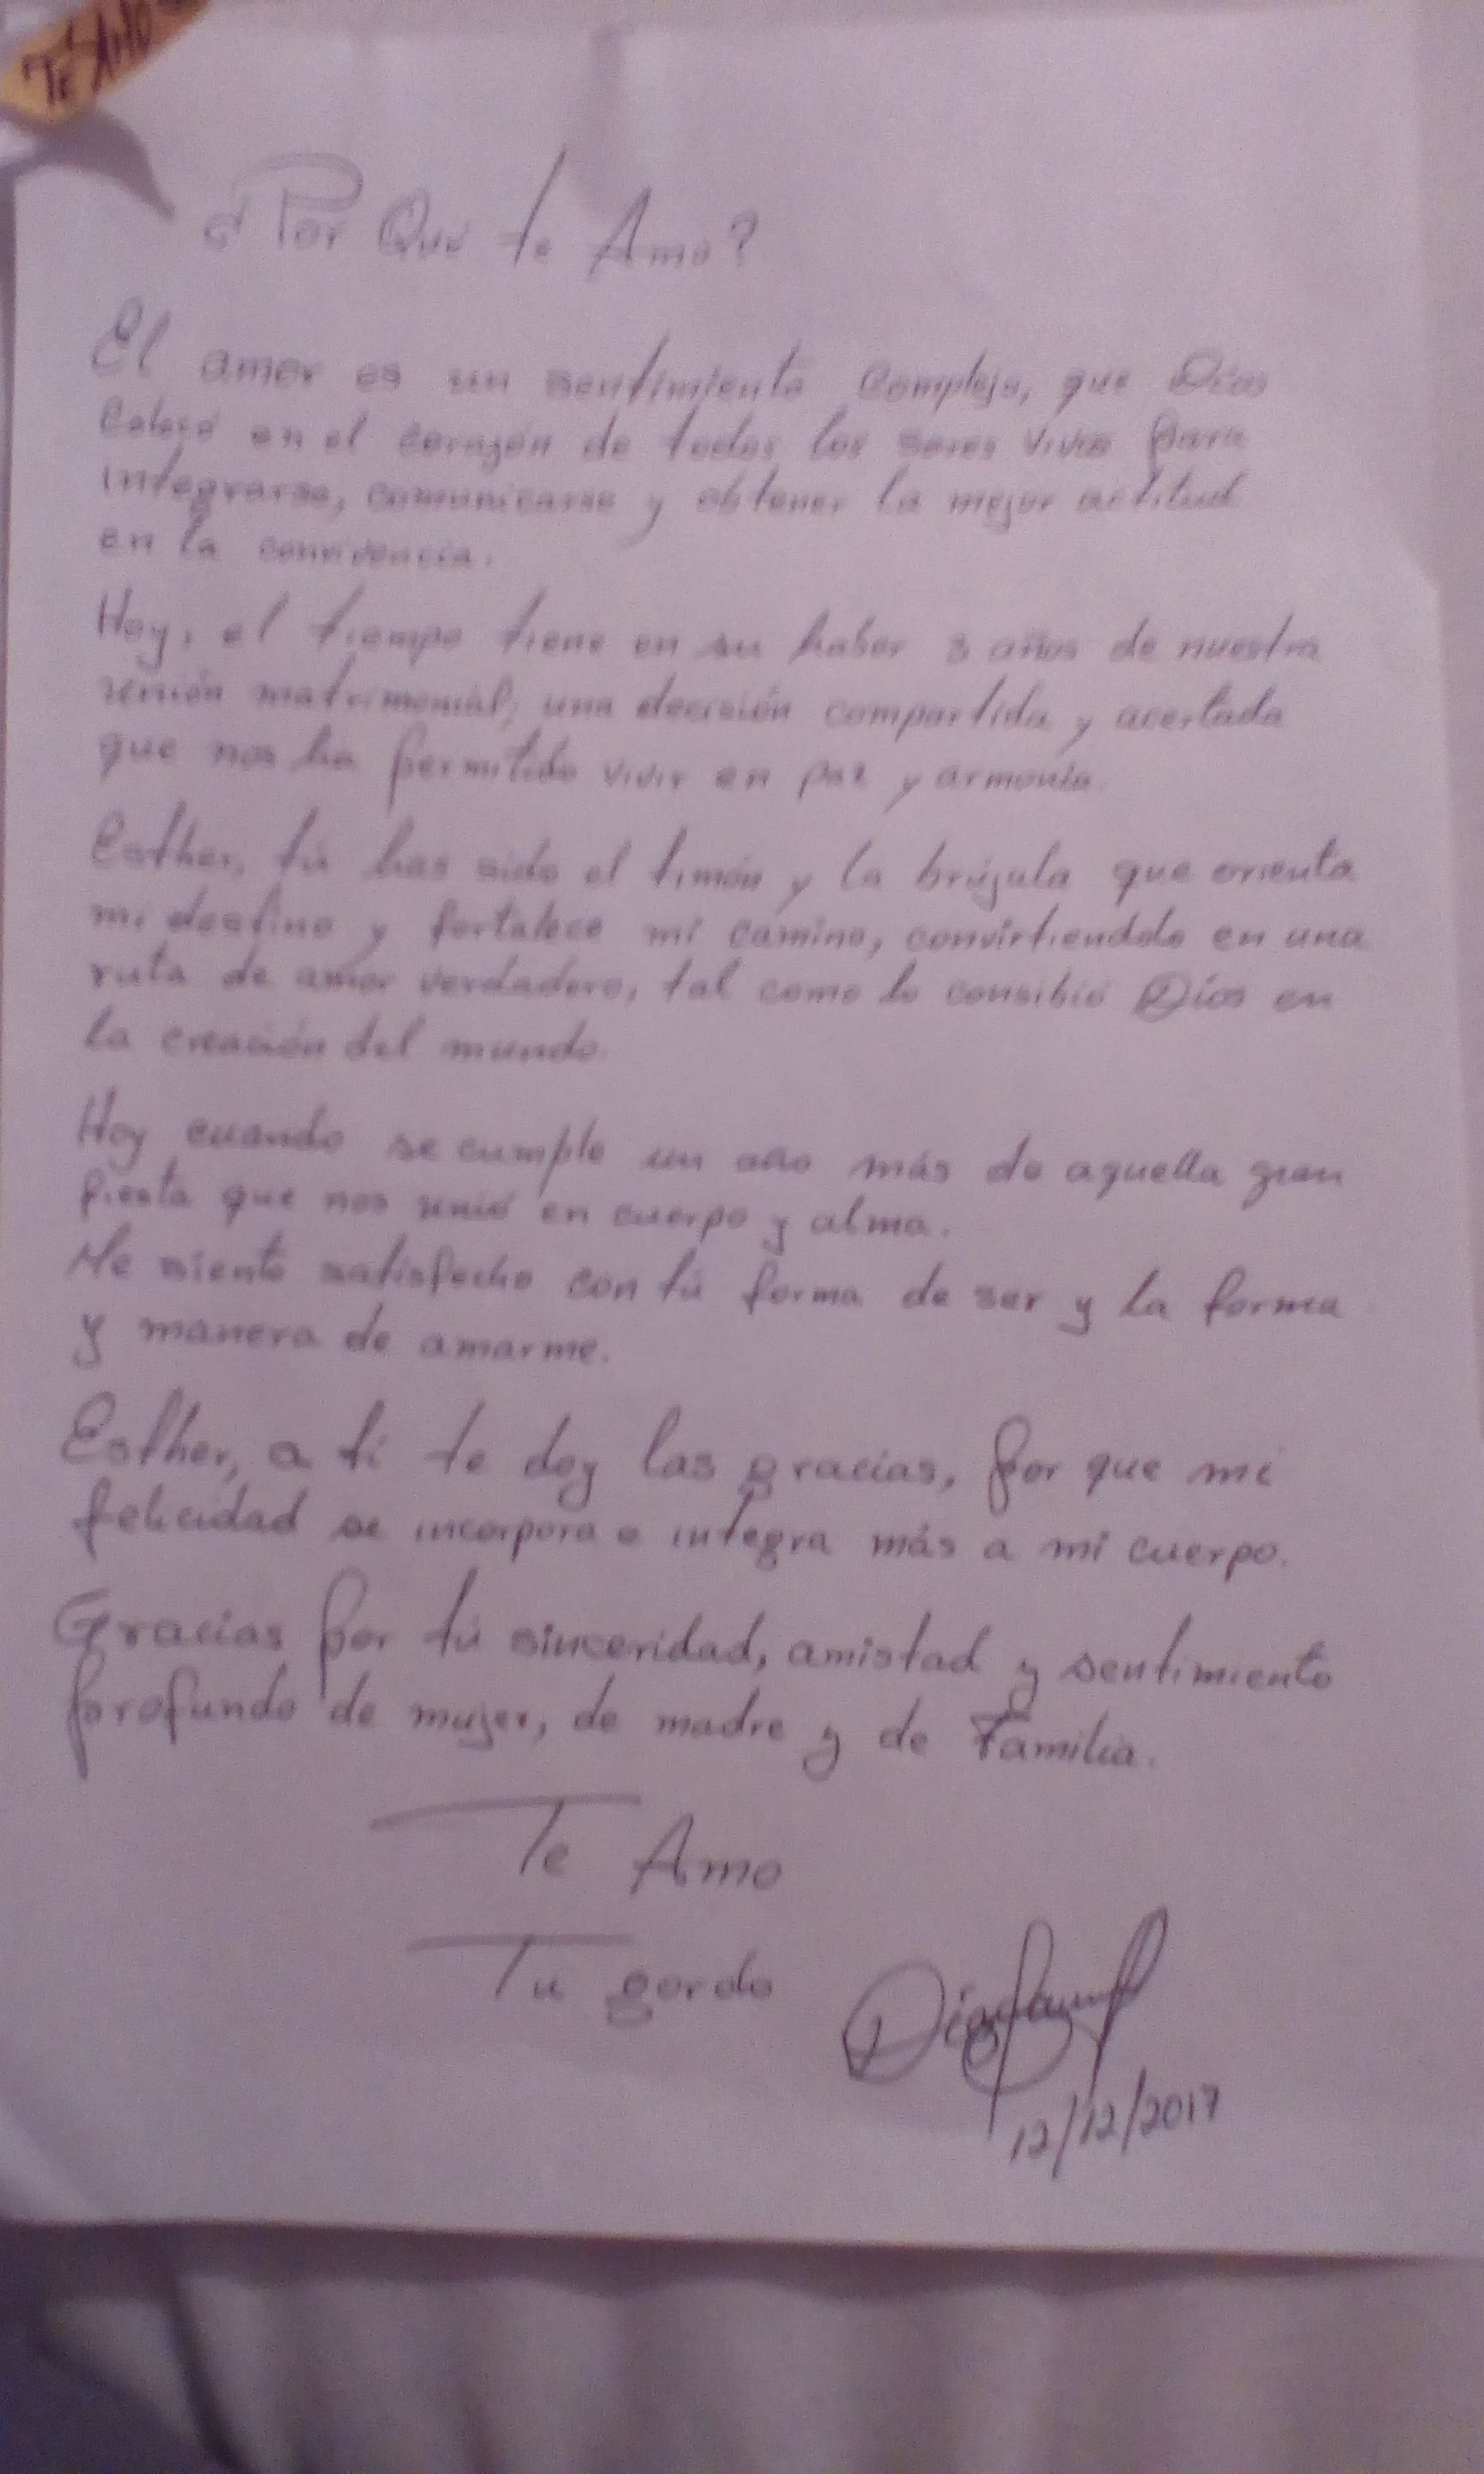 TE AMO
¿Por Qué te Amo?
El amor es un sentimiento complejo, que Dios
colocó en el corazón de todos los seres vivos para
integrarse, comunicarse y obtener la mejor actitud
en la convivencia.
Hoy, el tiempo tiene en su haber 3 años de nuestra
unión matrimonial; una decisión compartida y acertada
que nos ha permitido vivir en paz y armonía.
Esther, tú has sido el timón y la brújula que orienta
mi destino y fortalece mi camino, convirtiendolo en una
ruta de amor verdadero, tal como lo consibió Dios en
la creación del mundo.
Hoy cuando se cumple un año más de aquella gran
fiesta que nos unió en cuerpo y alma.
Me siento satisfecho con tú forma de ser y la forma
y manera de amarme.
Esther, a ti te doy las gracias, por que mi
felicidad se incorpora e integra más a mi cuerpo.
Gracias por tú sinceridad, amistad y sentimiento
profundo de mujer, de madre y de Familia.
Te Amo
Tu gordo
12/12/2017